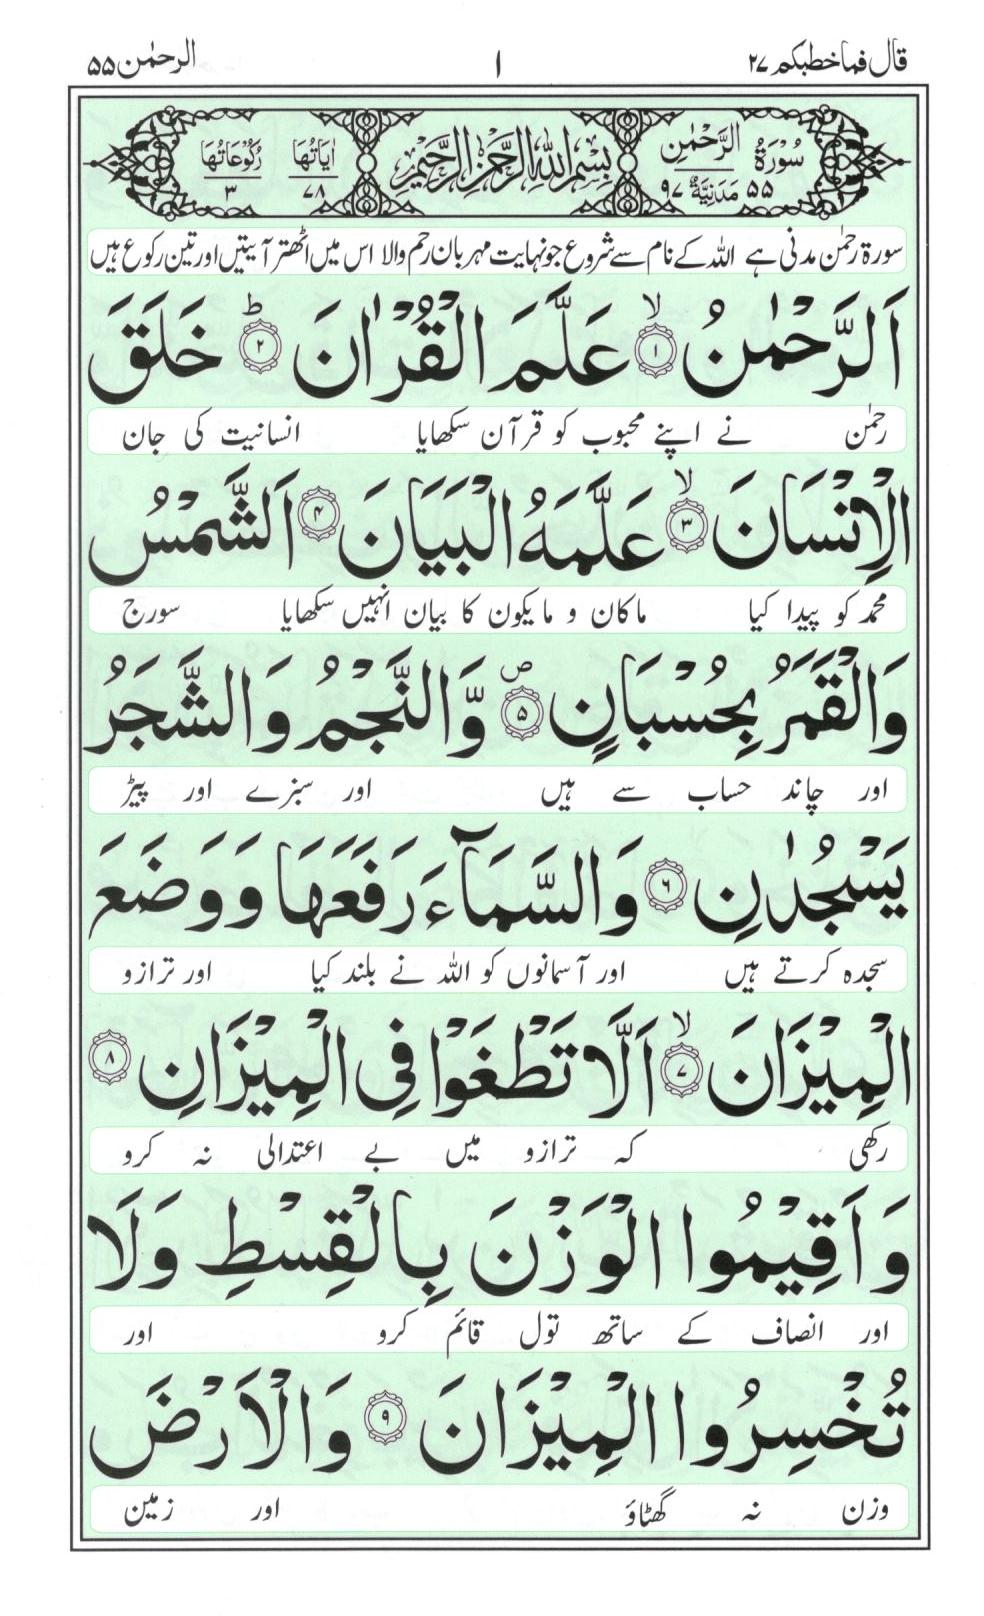 قال فماخطبکم ۲۷
۱
الرحمٰن ۵۵
سُوْرَةُ الرَّحْمٰنِ
۵۵ مَدَنِيَّةٌ ۹۷
بِسْمِ اللهِ الرَّحْمٰنِ الرَّحِيْمِ
اٰيَاتُهَا ۷۸
رُكُوْعَاتُهَا ۳
سورۃ رحمٰن مدنی ہے اللہ کے نام سے شروع جو نہایت مہربان رحم والا اس میں اٹھتر آیتیں اور تین رکوع ہیں
اَلرَّحْمٰنُ ۙ‏﴿۱﴾ عَلَّمَ الْقُرْاٰنَ ؕ‏﴿۲﴾ خَلَقَ
رحمٰن نے اپنے محبوب کو قرآن سکھایا انسانیت کی جان
الْاِنْسَانَ ۙ‏﴿۳﴾ عَلَّمَهُ الْبَيَانَ ﴿۴﴾ اَلشَّمْسُ
محمد کو پیدا کیا ماکان و مایکون کا بیان انہیں سکھایا سورج
وَالْقَمَرُ بِحُسْبَانٍ ۪‏﴿۵﴾ وَّالنَّجْمُ وَالشَّجَرُ
اور چاند حساب سے ہیں اور سبزے اور پیڑ
يَسْجُدٰنِ ﴿۶﴾ وَالسَّمَآءَ رَفَعَهَا وَوَضَعَ
سجدہ کرتے ہیں اور آسمانوں کو اللہ نے بلند کیا اور ترازو
الْمِيْزَانَ ۙ‏﴿۷﴾ اَلَّا تَطْغَوْا فِى الْمِيْزَانِ ﴿۸﴾
رکھی کہ ترازو میں بے اعتدالی نہ کرو
وَاَقِيْمُوا الْوَزْنَ بِالْقِسْطِ وَلَا
اور انصاف کے ساتھ تول قائم کرو اور
تُخْسِرُوا الْمِيْزَانَ ﴿۹﴾ وَالْاَرْضَ
وزن نہ گھٹاؤ اور زمین